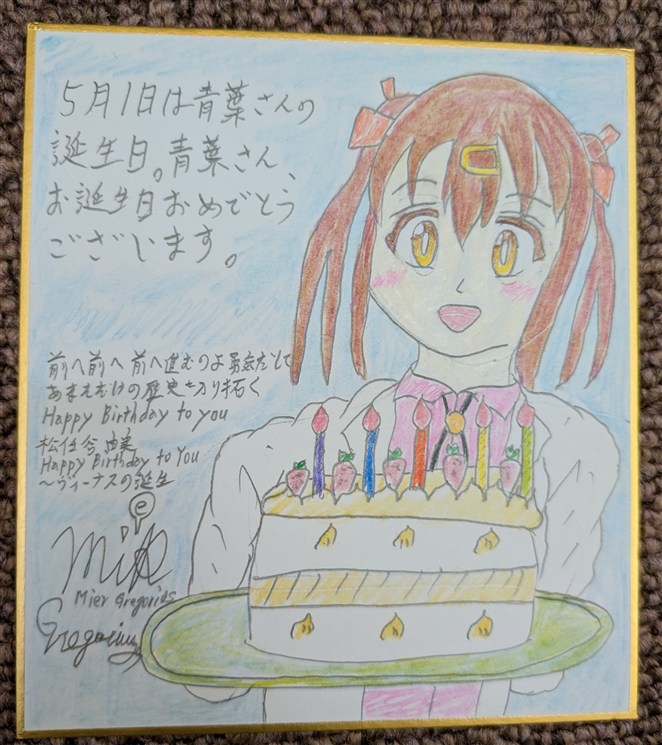 5月1日は青葉さんの
誕生日。青葉さん、
お誕生日おめでとう
ございます。
前へ前へ前へ進むのよ勇気だして
あなただけの歴史切り拓く
Happy Birthday to you
松任谷由実
Happy Birthday to You
〜ヴィーナスの誕生
e
Mier Gregorius
Gregorius